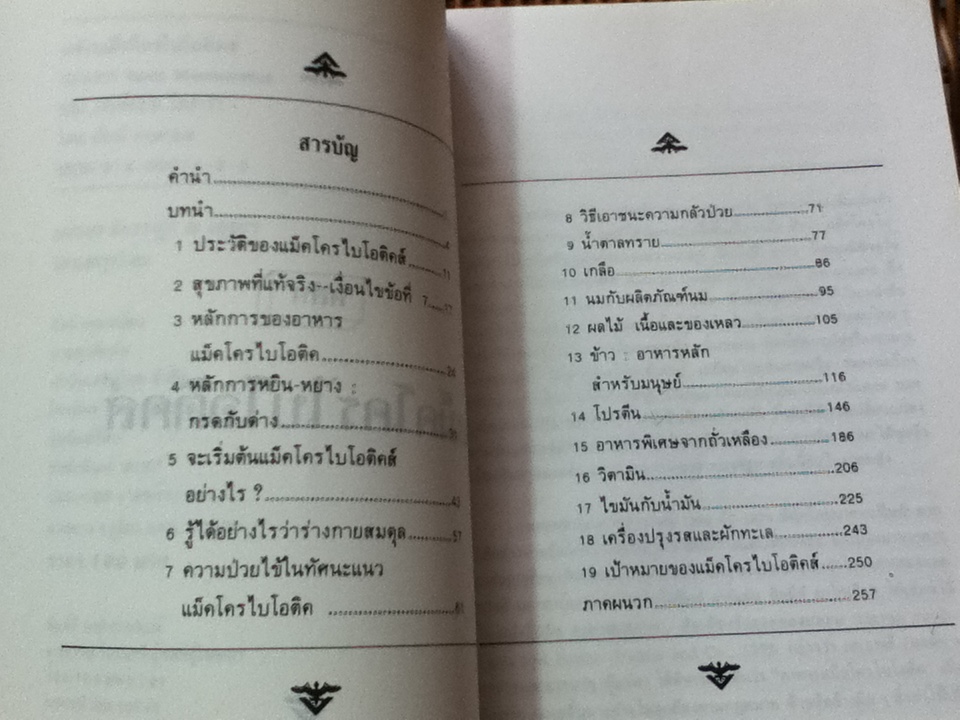 สารบัญ
คำนำ
บทนำ
1 ประวัติของแม็คโครไบโอติคส์ 11
2 สุขภาพที่แท้จริง--เงื่อนไขข้อที่ 7 17
3 หลักการของอาหาร
แม็คโครไบโอติค
4 หลักการหยิน-หยาง :
กรดกับด่าง
5 จะเริ่มต้นแม็คโครไบโอติคส์
อย่างไร ?
6 รู้ได้อย่างไรว่าร่างกายสมดุล 57
7 ความป่วยไข้ในทัศนะแนว
แม็คโครไบโอติค
8 วิธีเอาชนะความกลัวป่วย 71
9 น้ำตาลทราย 77
10 เกลือ 86
11 นมกับผลิตภัณฑ์นม 95
12 ผลไม้ เนื้อและของเหลว 105
13 ข้าว : อาหารหลัก
สำหรับมนุษย์ 116
14 โปรตีน 146
15 อาหารพิเศษจากถั่วเหลือง 186
16 วิตามิน 206
17 ไขมันกับน้ำมัน 225
18 เครื่องปรุงรสและผักทะเล 243
19 เป้าหมายของแม็คโครไบโอติคส์ 250
ภาคผนวก 257